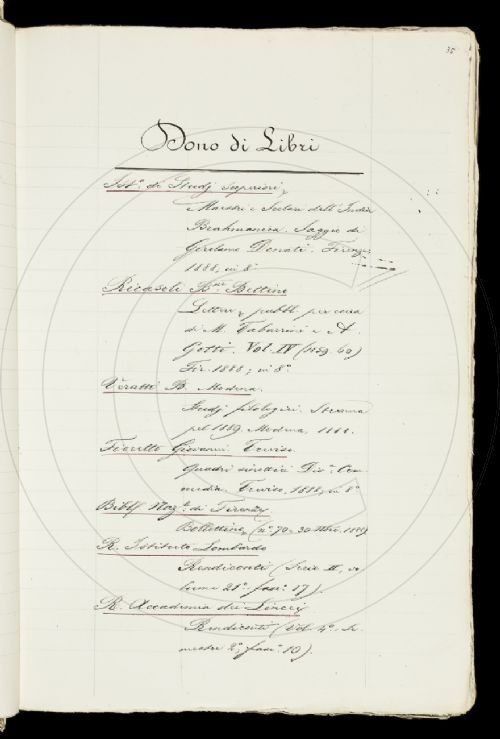 35
Dono di Libri
Ist.º di Studj Superiori,
Maestri e Scolari dell'India
Brahmanica. Saggio di
Girolamo Donati. Firenze
1888, in 8º
Ricasoli Bne Bettino
Lettere pubbl. per cura
di M. Tabarrini e A.
Gotti. Vol. IV (1859-60)
Fir. 1888; in 8º
Veratti B. Modena.
Studj filologici. Strenna
pel 1889. Modena, 1888.
Fioretto Giovanni. Treviso.
Quadri sinottici Div.ª Com
media. Treviso, 1888, in 8º
Bibl. Naz.le di Firenze
Bollettino, (nº 70. 30 9bre. 1888)
R. Istituto Lombardo
Rendiconti (Serie II, vo
lume 21º fasc. 17).
R. Accademia dei Lincei
Rendiconti (Vol. 4º. Se
mestre 2º, fasc. 10).